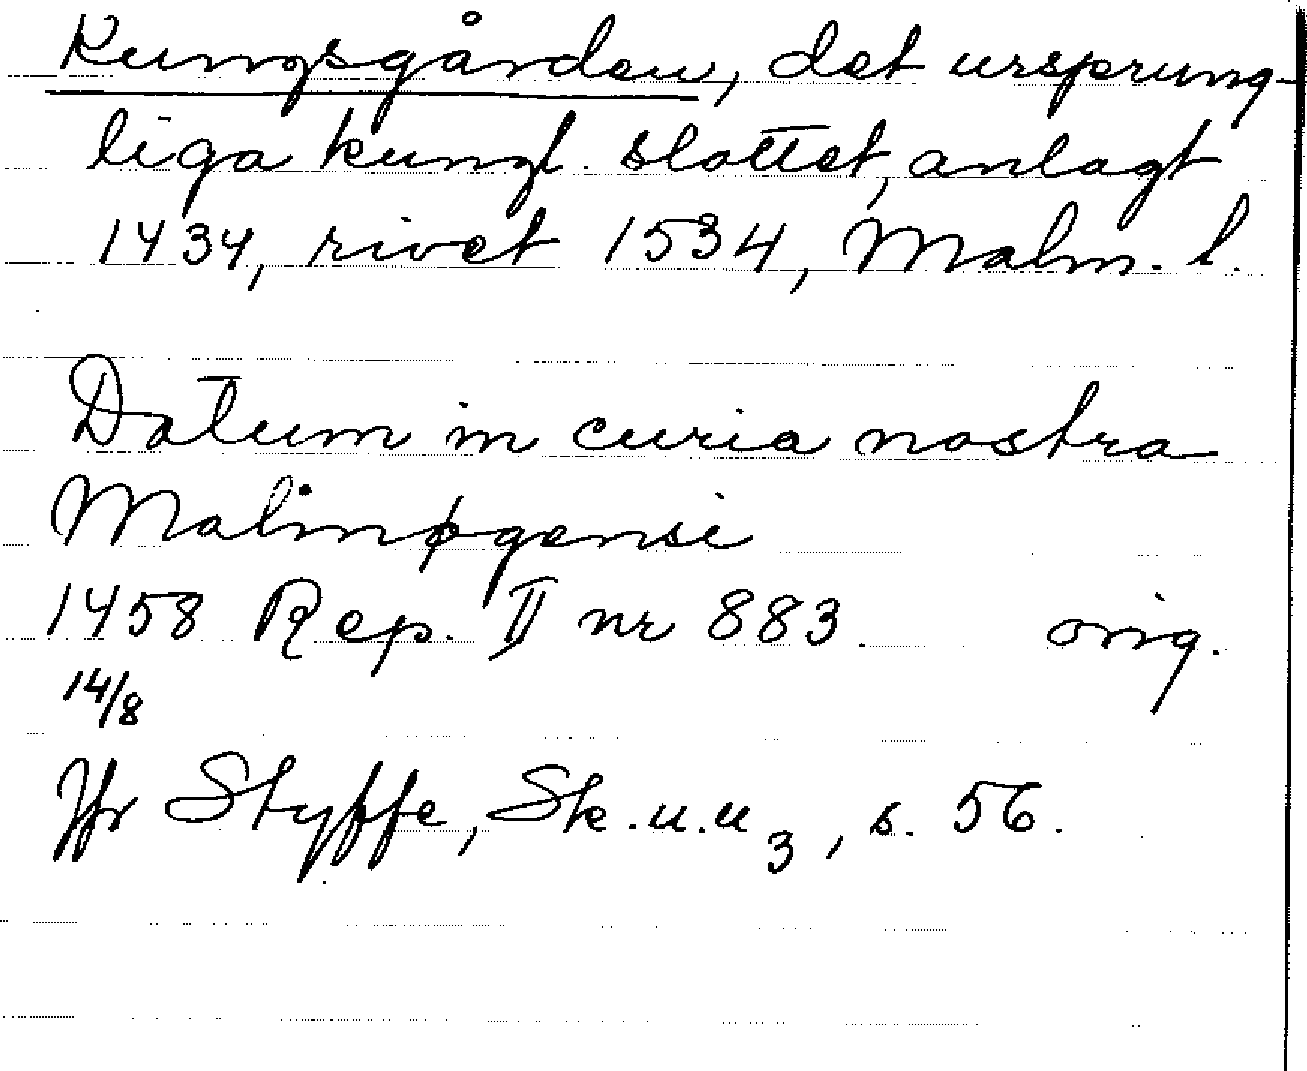 Kungsgården, det ursprung-
liga kungl. slottet, anlagt
1434, rivet 1534, Malm. l.
Datum in curia nostra
Malmøgensi
1458 Rep. II nr 883. orig.
14/8
Jfr Styffe, Sk.u.u 3, s. 56.